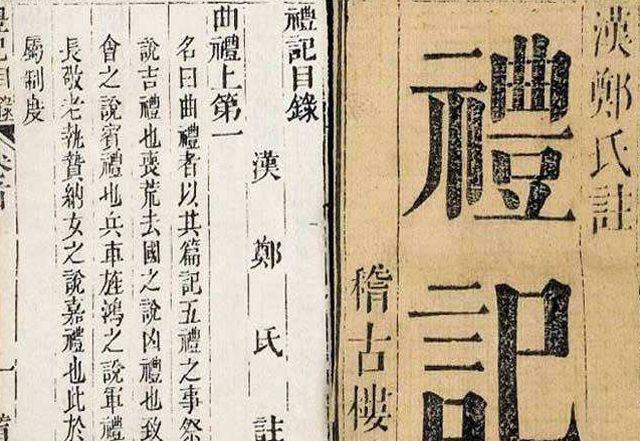 漢鄭氏註
禮記
稽古樓
禮記目錄
漢鄭氏註
曲禮上第一
名曰曲禮者以其篇記五禮之事祭
說吉禮也喪荒去國之說凶禮也致
會之說賓禮也兵車旌鴻之說軍禮
長敬老執贄納女之說嘉禮也此於
屬制度
記目錄
一